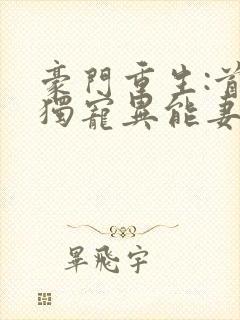 豪門重生:首
獨寵異能妻
畢飛宇